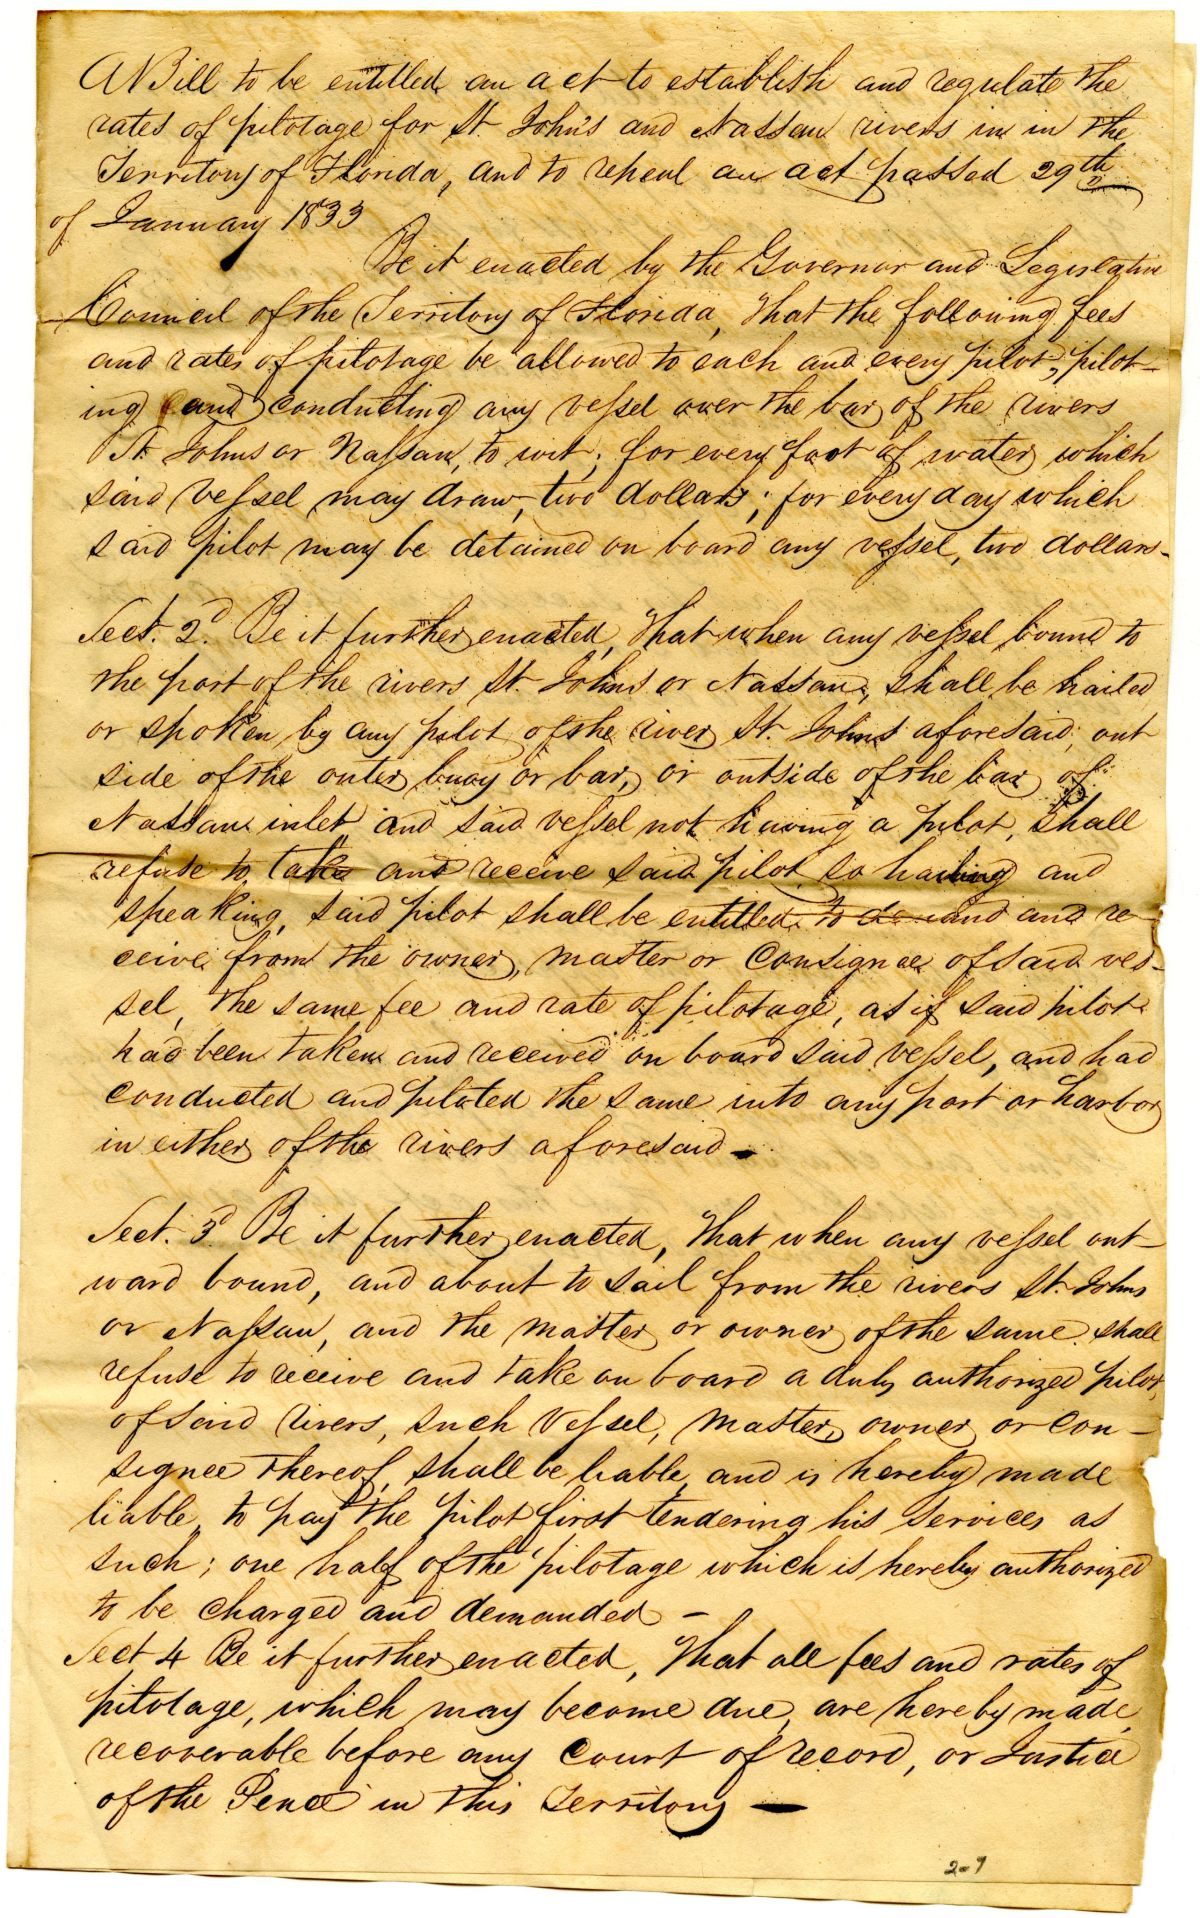 A Bill to be entitled an act to establish and regulate the
rates of pilotage for St. John's and Nassau rivers in in the
Territory of Florida, and to repeal an act passed 29th
of January 1833
Be it enacted by the Governor and Legislative
Council of the Territory of Florida, That the following fees
and rates of pilotage be allowed to each and every pilot, pilot-
ing and conducting any vessel over the bar of the rivers
St. Johns or Nassau, to wit; for every foot of water which
said vessel may draw, two dollars; for every day which
said pilot may be detained on board any vessel, two dollars-
Sect. 2d. Be it further enacted, That when any vessel bound to
the port of the rivers St. Johns or Nassau, shall be hailed
or spoken by any pilot of the river St. Johns aforesaid, out
side of the outer buoy or bar, or outside of the bar of
Nassau inlet and said vessel not having a pilot, shall
refuse to take and receive said pilot so hailing and
speaking, said pilot shall be entitled to demand and re-
ceive from the owner, master or consignee of said ves-
sel, the same fee and rate of pilotage, as if said pilot
had been taken and received on board said vessel, and had
conducted and piloted the same into any port or harbor
in either of the rivers aforesaid -
Sect. 3d Be it further enacted, That when any vessel out-
ward bound, and about to sail from the rivers St. Johns
or Nassau, and the master or owner of the same shall
refuse to receive and take on board a duly authorized pilot,
of said rivers, such vessel, master, owner or con-
signee thereof, shall be liable, and is hereby made
liable, to pay the pilot first tendering his services as
such; one half of the pilotage which is hereby authorized
to be charged and demanded -
Sect 4 Be it further enacted, That all fees and rates of
pilotage, which may become due, are hereby made,
recoverable before any court of record, or Justice
of the Peace in this Territory -
2-9